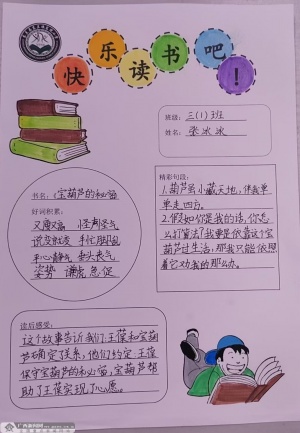 快乐读书吧！
班级：三(1)班
姓名：张冰冰
书名：《宝葫芦的秘密》
好词积累：
又瘦又高 怪声怪气
说变就变 手忙脚乱
平心静气 垂头丧气
姿势 谦虚 急促
精彩句段：
1.葫芦虽小藏天地，伴我单
单走四方。
2.假如你是我的话，你怎
么打算法？我要是依靠这个宝
葫芦过生活，那我只能依照
着它劝我的那么办。
读后感受：
这个故事告诉我们，王葆和宝葫
芦确定关系，他们约定 王葆
保守宝葫芦的秘密，宝葫芦帮
助了王葆实现了心愿。